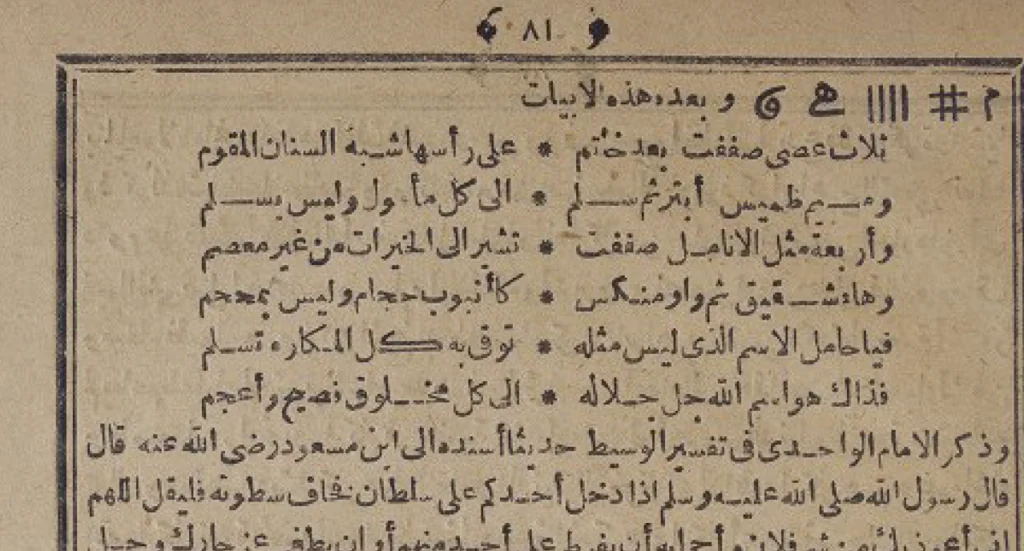 ٨١
م # |||| ھ و وبعده هذه الابيات
ثلاث عصى صففت بعد خأتم * على رأسها شبه السنان المقوم
وميم طميس أبتر ثم سلم * الى كل مأمول وليس بسلم
وأربعة مثل الانامل صففت * تشير الى الخيرات من غير معصم
وهاء شقيق ثم واو منكس * كأنبوب حجام وليس بمحجم
فيا حامل الاسم الذى ليس مثله * توقى به كل المكاره تسلم
فذاك هو اسم الله جل جلاله * الى كل مخلوق فصيح وأعجم
وذكر الامام الواحدى فى تفسير الوسيط حديثا أسنده الى ابن مسعود رضى الله عنه قال
قال رسول الله صلى الله عليه وسلم اذا دخل أحدكم على سلطان يخاف سطوته فليقل اللهم
انى أعوذ بك من شر فلان وأحزابه أن يفرط على أحد منهم أو ان يطغى عز جارك وجل